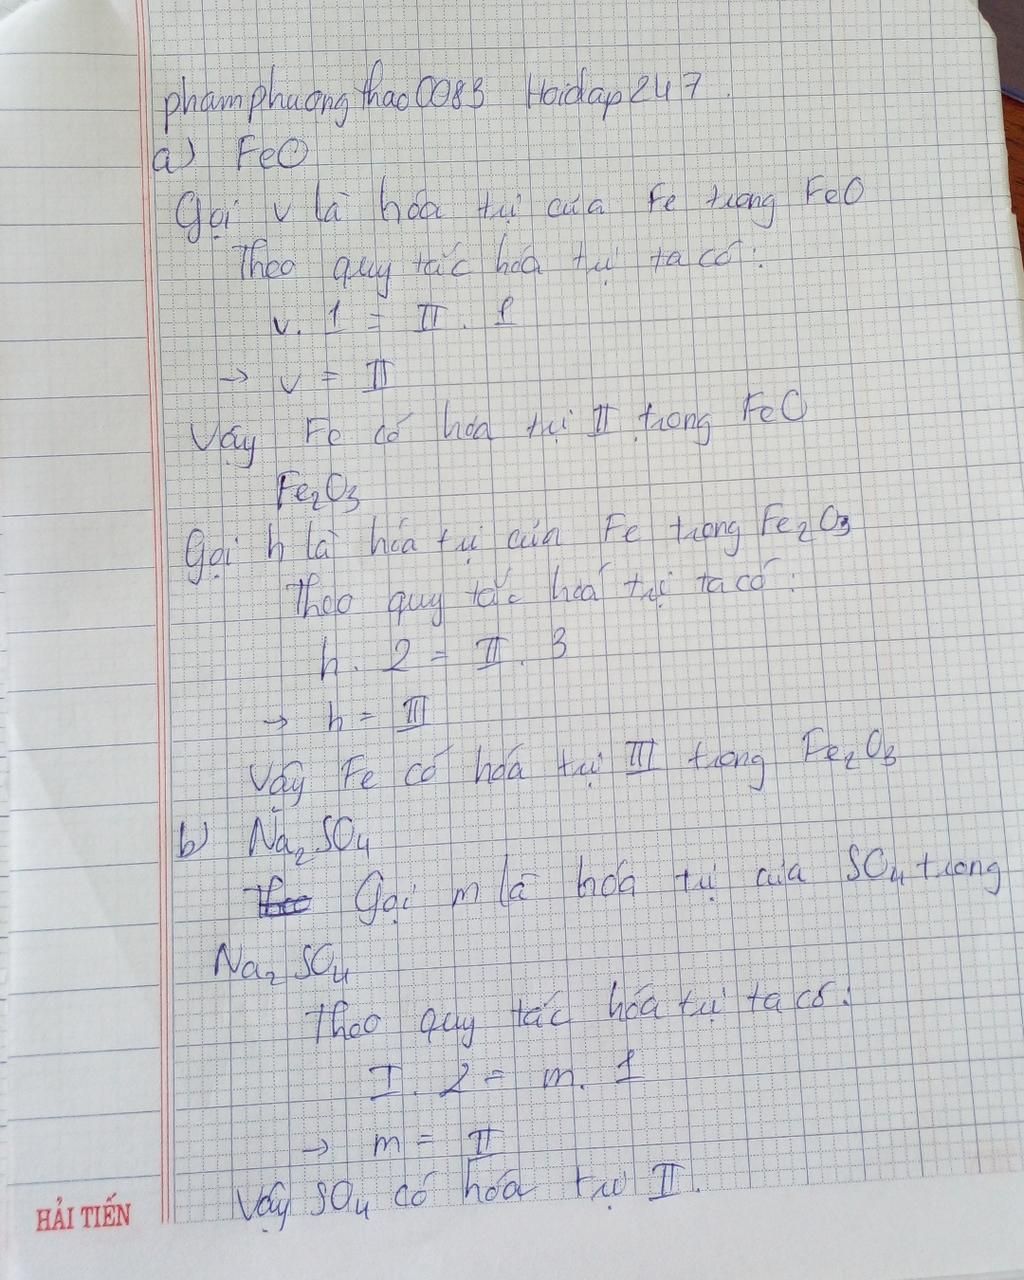 phamphuongthao0083 Hoidap247.
a) FeO
Gọi v là hóa trị của Fe trong FeO
Theo quy tắc hoá trị ta có:
v. 1 = II. 1
→ v = II
Vậy Fe có hóa trị II trong FeO
Fe₂O₃
Gọi h là hóa trị của Fe trong Fe₂O₃
Theo quy tắc hoá trị ta có:
h. 2 = II. 3
→ h = III
Vậy Fe có hoá trị III trong Fe₂O₃
b) Na₂SO₄
Theo Gọi m là hóa trị của SO₄ trong
Na₂SO₄
Theo quy tắc hóa trị ta có:
I. 2 = m. 1
→ m = II
Vậy SO₄ có hóa trị II.
HẢI TIẾN